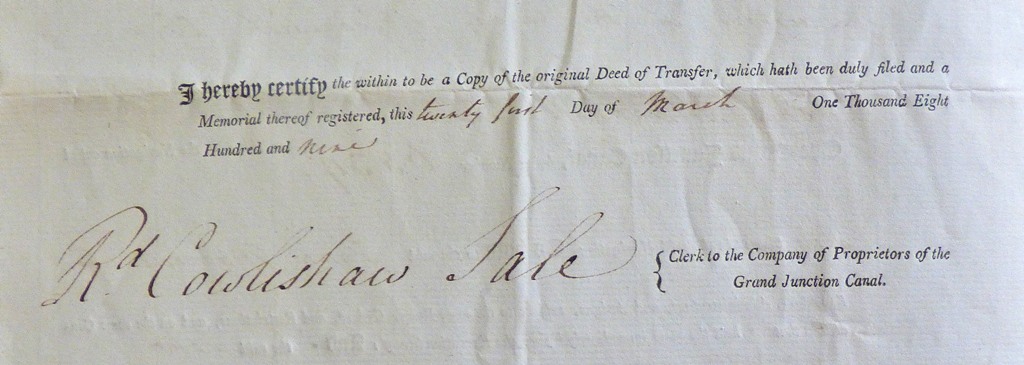 I hereby certify the within to be a Copy of the original Deed of Transfer, which hath been duly filed and a
Memorial thereof registered, this twenty first Day of March One Thousand Eight
Hundred and nine
Rd Cowlishaw Sale { Clerk to the Company of Proprietors of the
Grand Junction Canal.